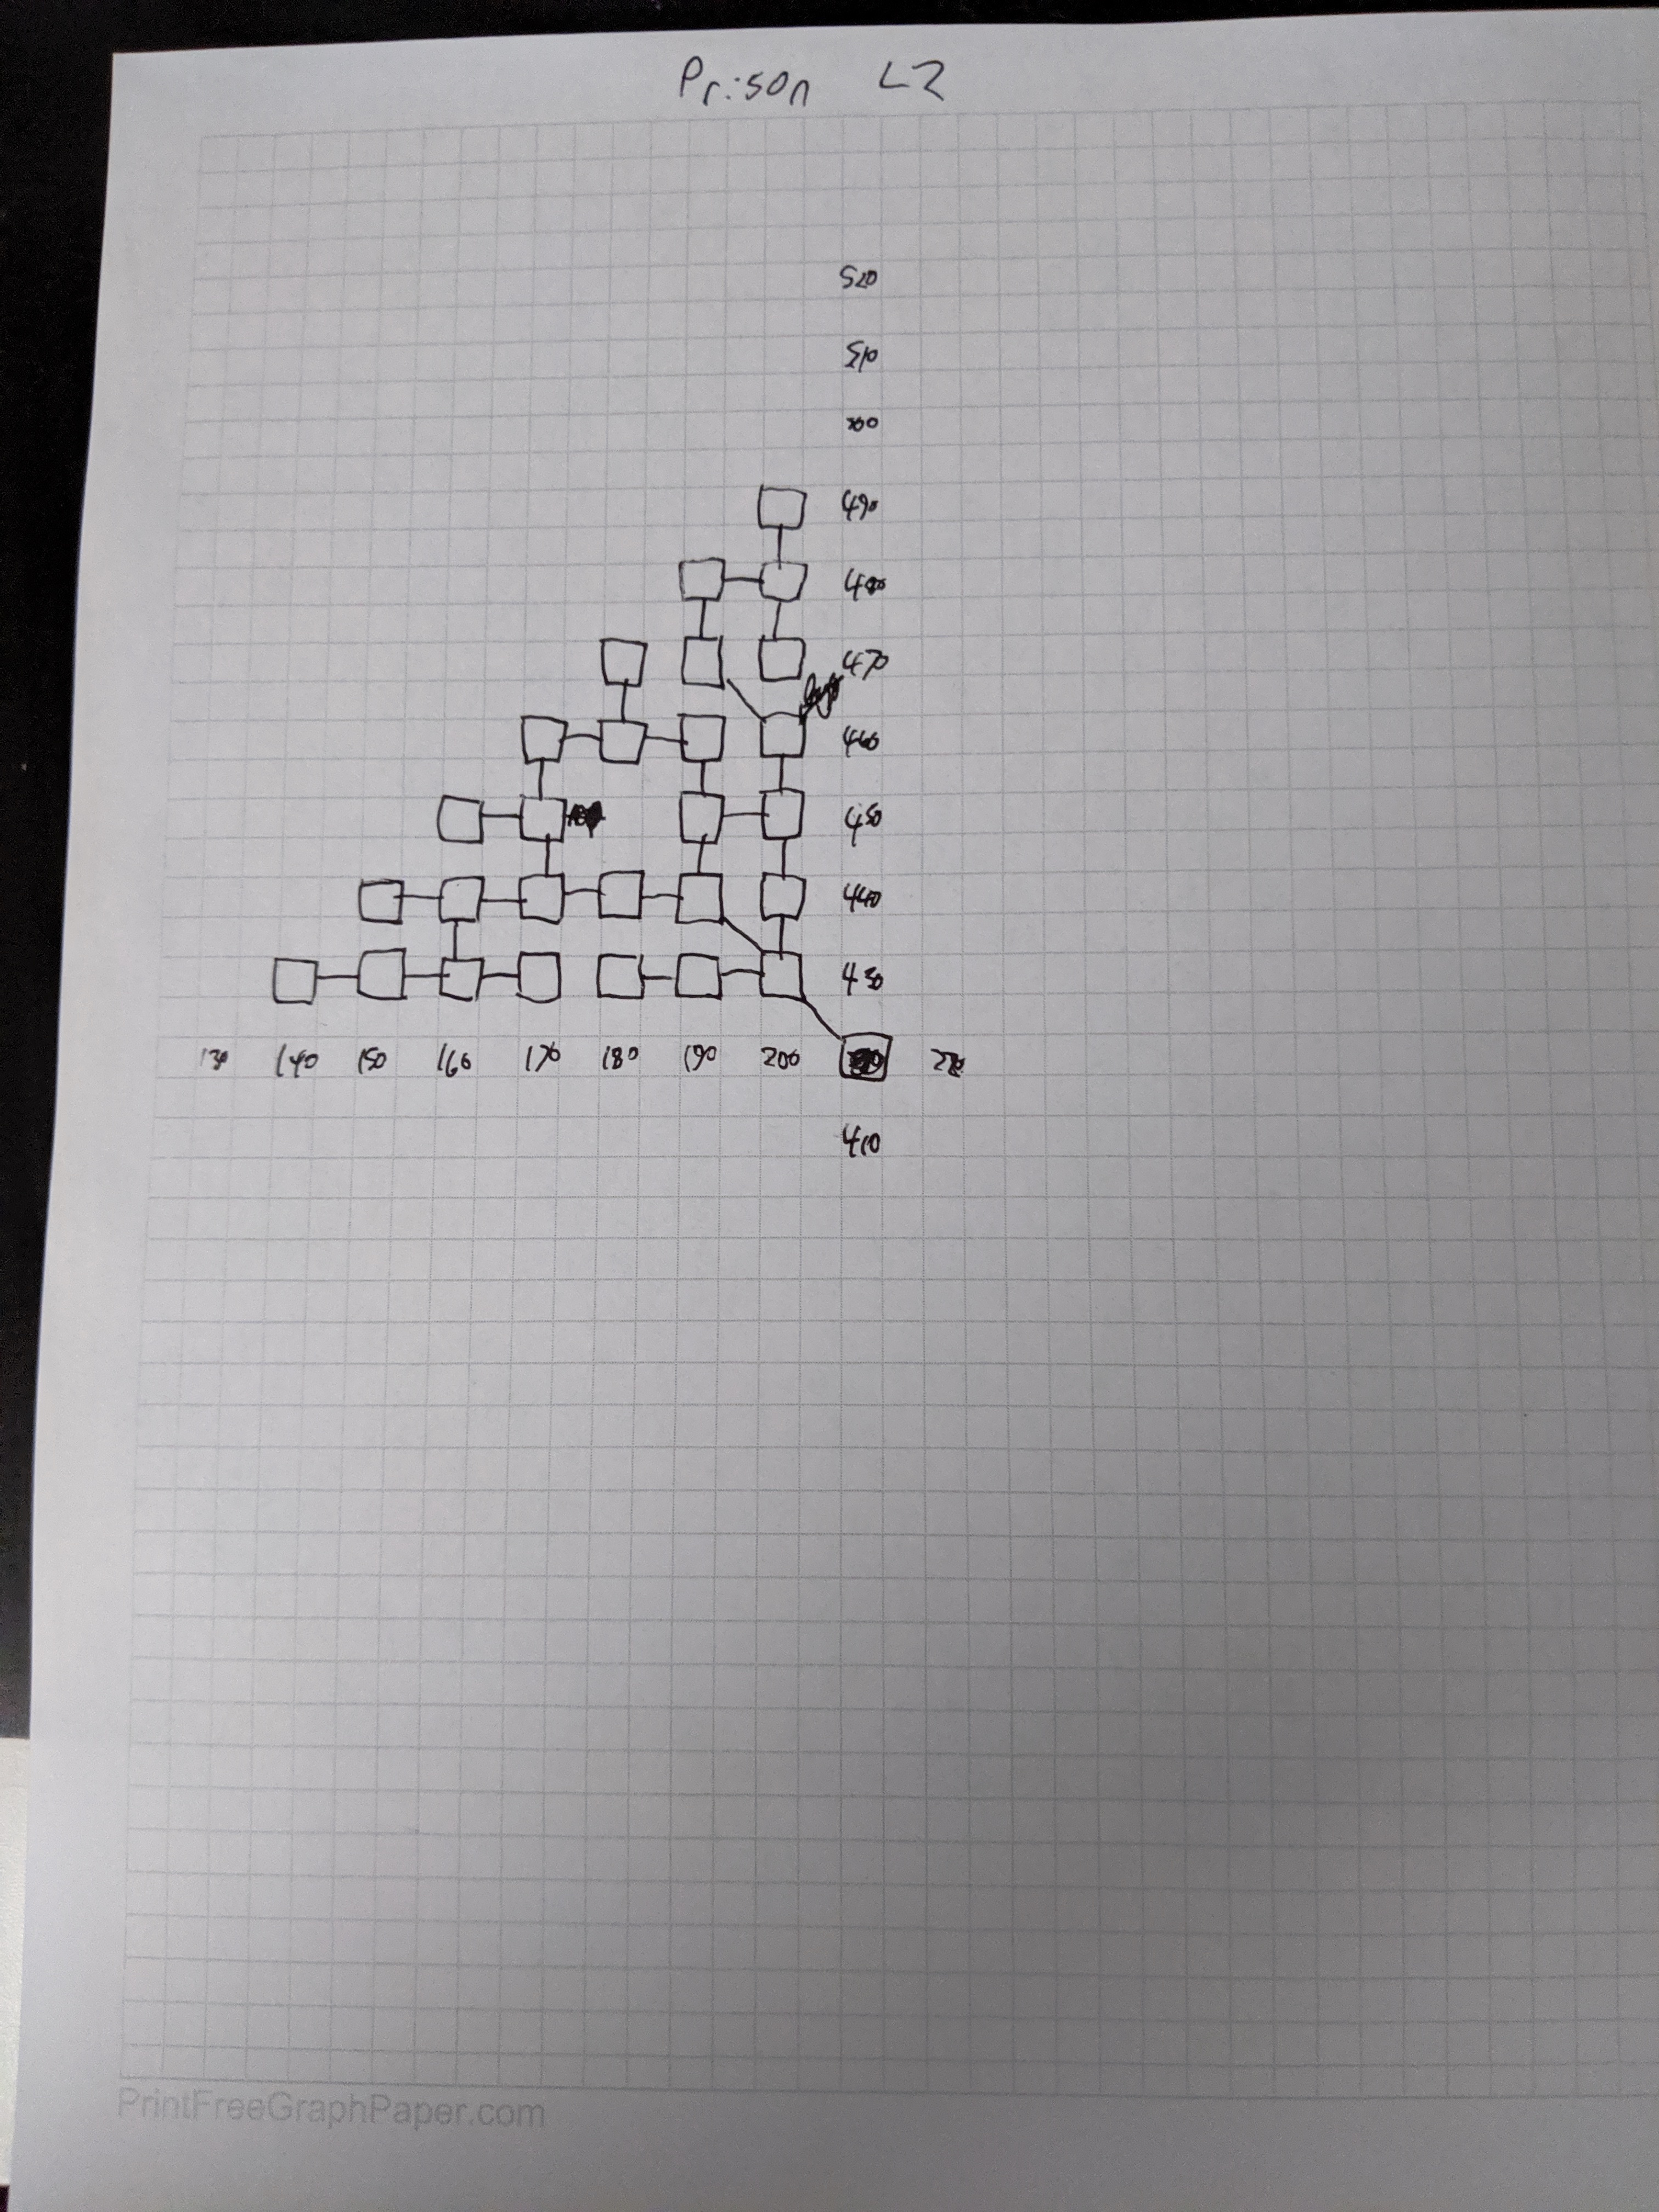 Prison L2
520
510
490
480
470
460
450
440
430
130 140 150 160 170 180 190 200 220
410
PrintFreeGraphPaper.com